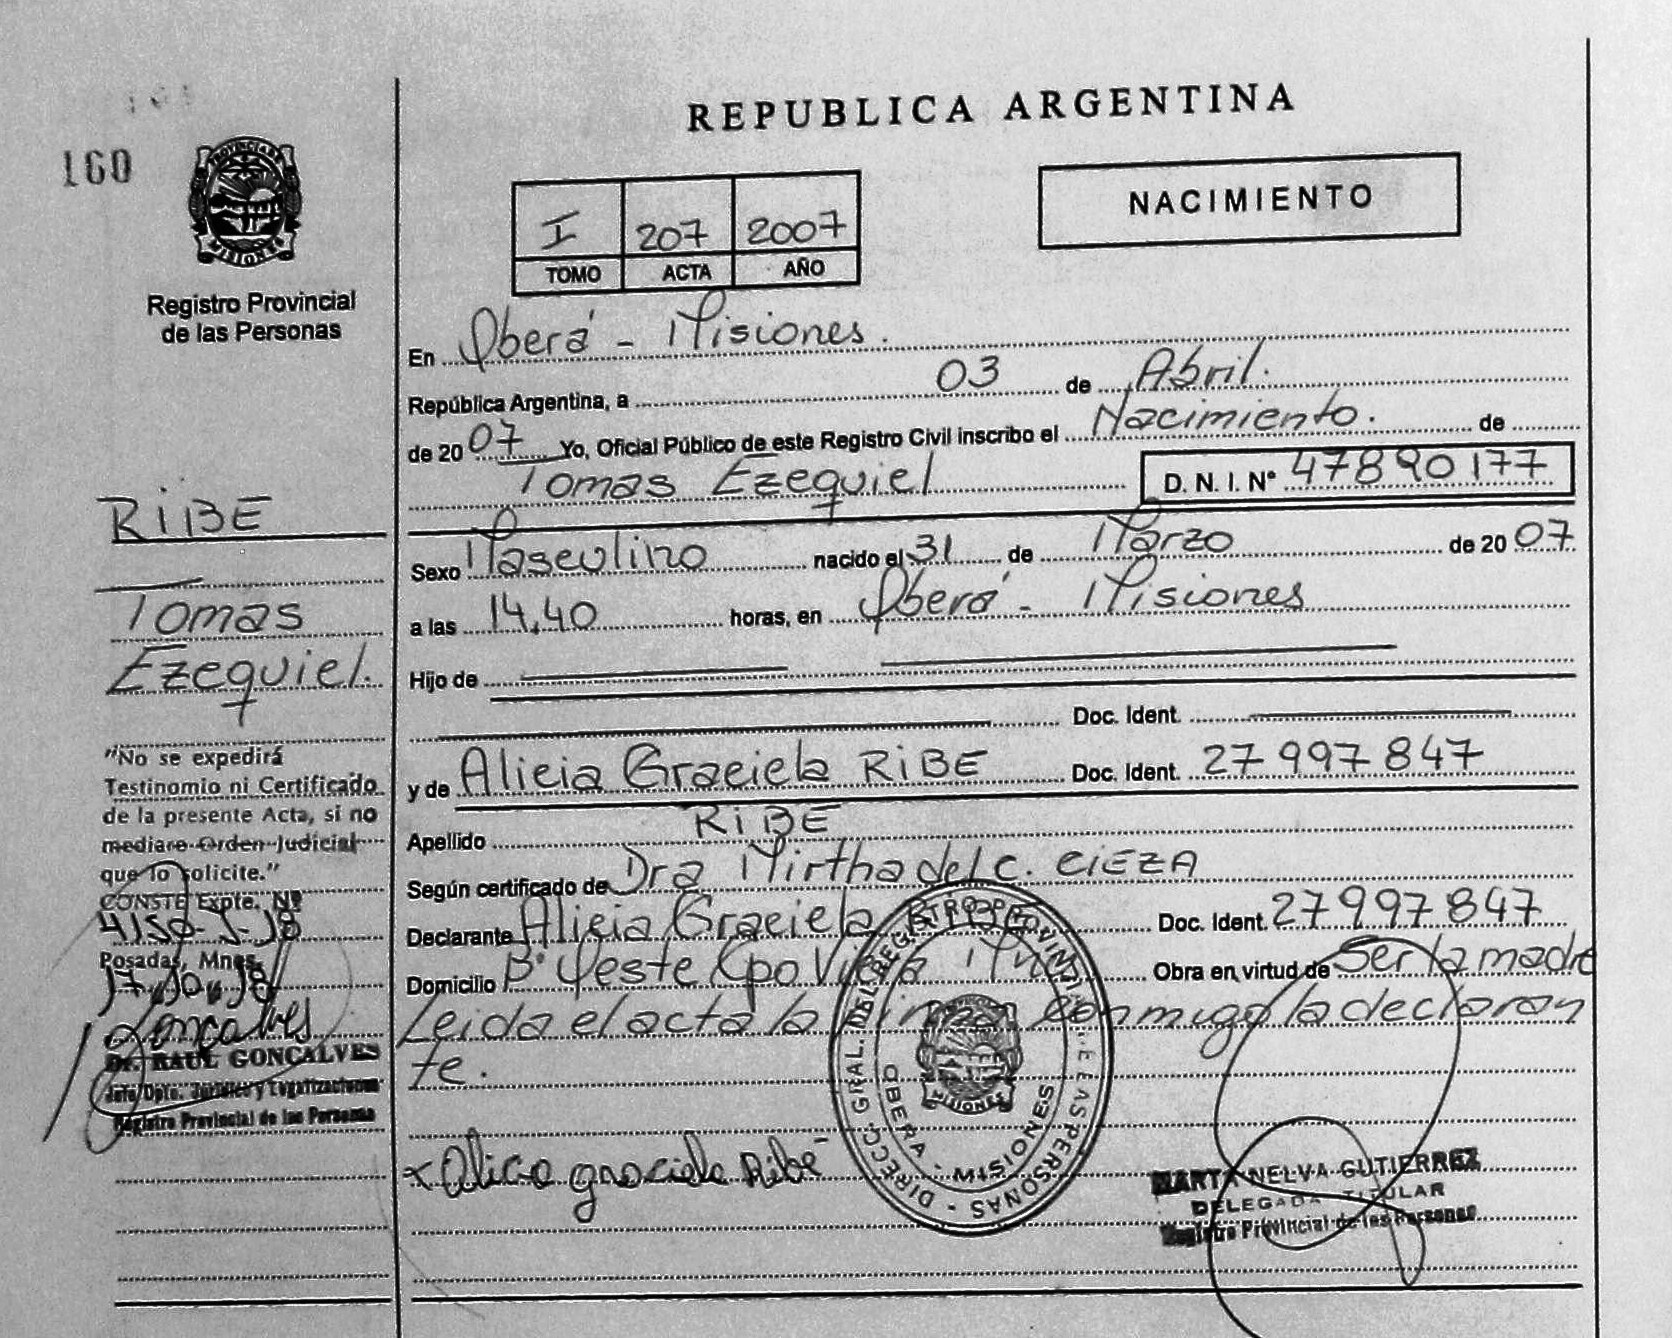 REPUBLICA ARGENTINA
160
PROVINCIA DE
MISIONES
Registro Provincial
de las Personas
I 207 2007
TOMO ACTA AÑO
NACIMIENTO
En Oberá - Misiones.
República Argentina, a 03 de Abril.
de 2007 Yo, Oficial Público de este Registro Civil inscribo el Nacimiento. de
Tomas Ezequiel D. N. I. Nº 47890177
Sexo Masculino nacido el 31 de Marzo de 2007
a las 14,40 horas, en Oberá - Misiones
Hijo de
Doc. Ident.
y de Alicia Graciela RIBE Doc. Ident. 27 997 847
Apellido RIBE
Según certificado de Dra Mirtha del C. CIEZA
Declarante Alicia Graciela RIBE Doc. Ident. 27997847
Domicilio Bº Oeste Cpo Viera Obra en virtud de Ser la madre
Leida el acta la firma conmigo la declaran
te.
x Alicia graciela Ribé
DIRECC. GRAL. DEL REGISTRO PROVINCIAL DE LAS PERSONAS -
OBERA - MISIONES
MISIONES
MARTA NELVA GUTIERREZ
DELEGADA TITULAR
Registro Provincial de las Personas
RIBE
Tomas
Ezequiel.
"No se expedirá
Testinomio ni Certificado
de la presente Acta, si no
mediare Orden Judicial
que lo solicite."
CONSTE Expte. Nº
4150-J-18
Posadas, Mnes.
17.10.18
Goncalves
Dr. RAUL GONCALVES
Jefe Dpto. Jurídico y Legalizaciones
Registro Provincial de las Personas